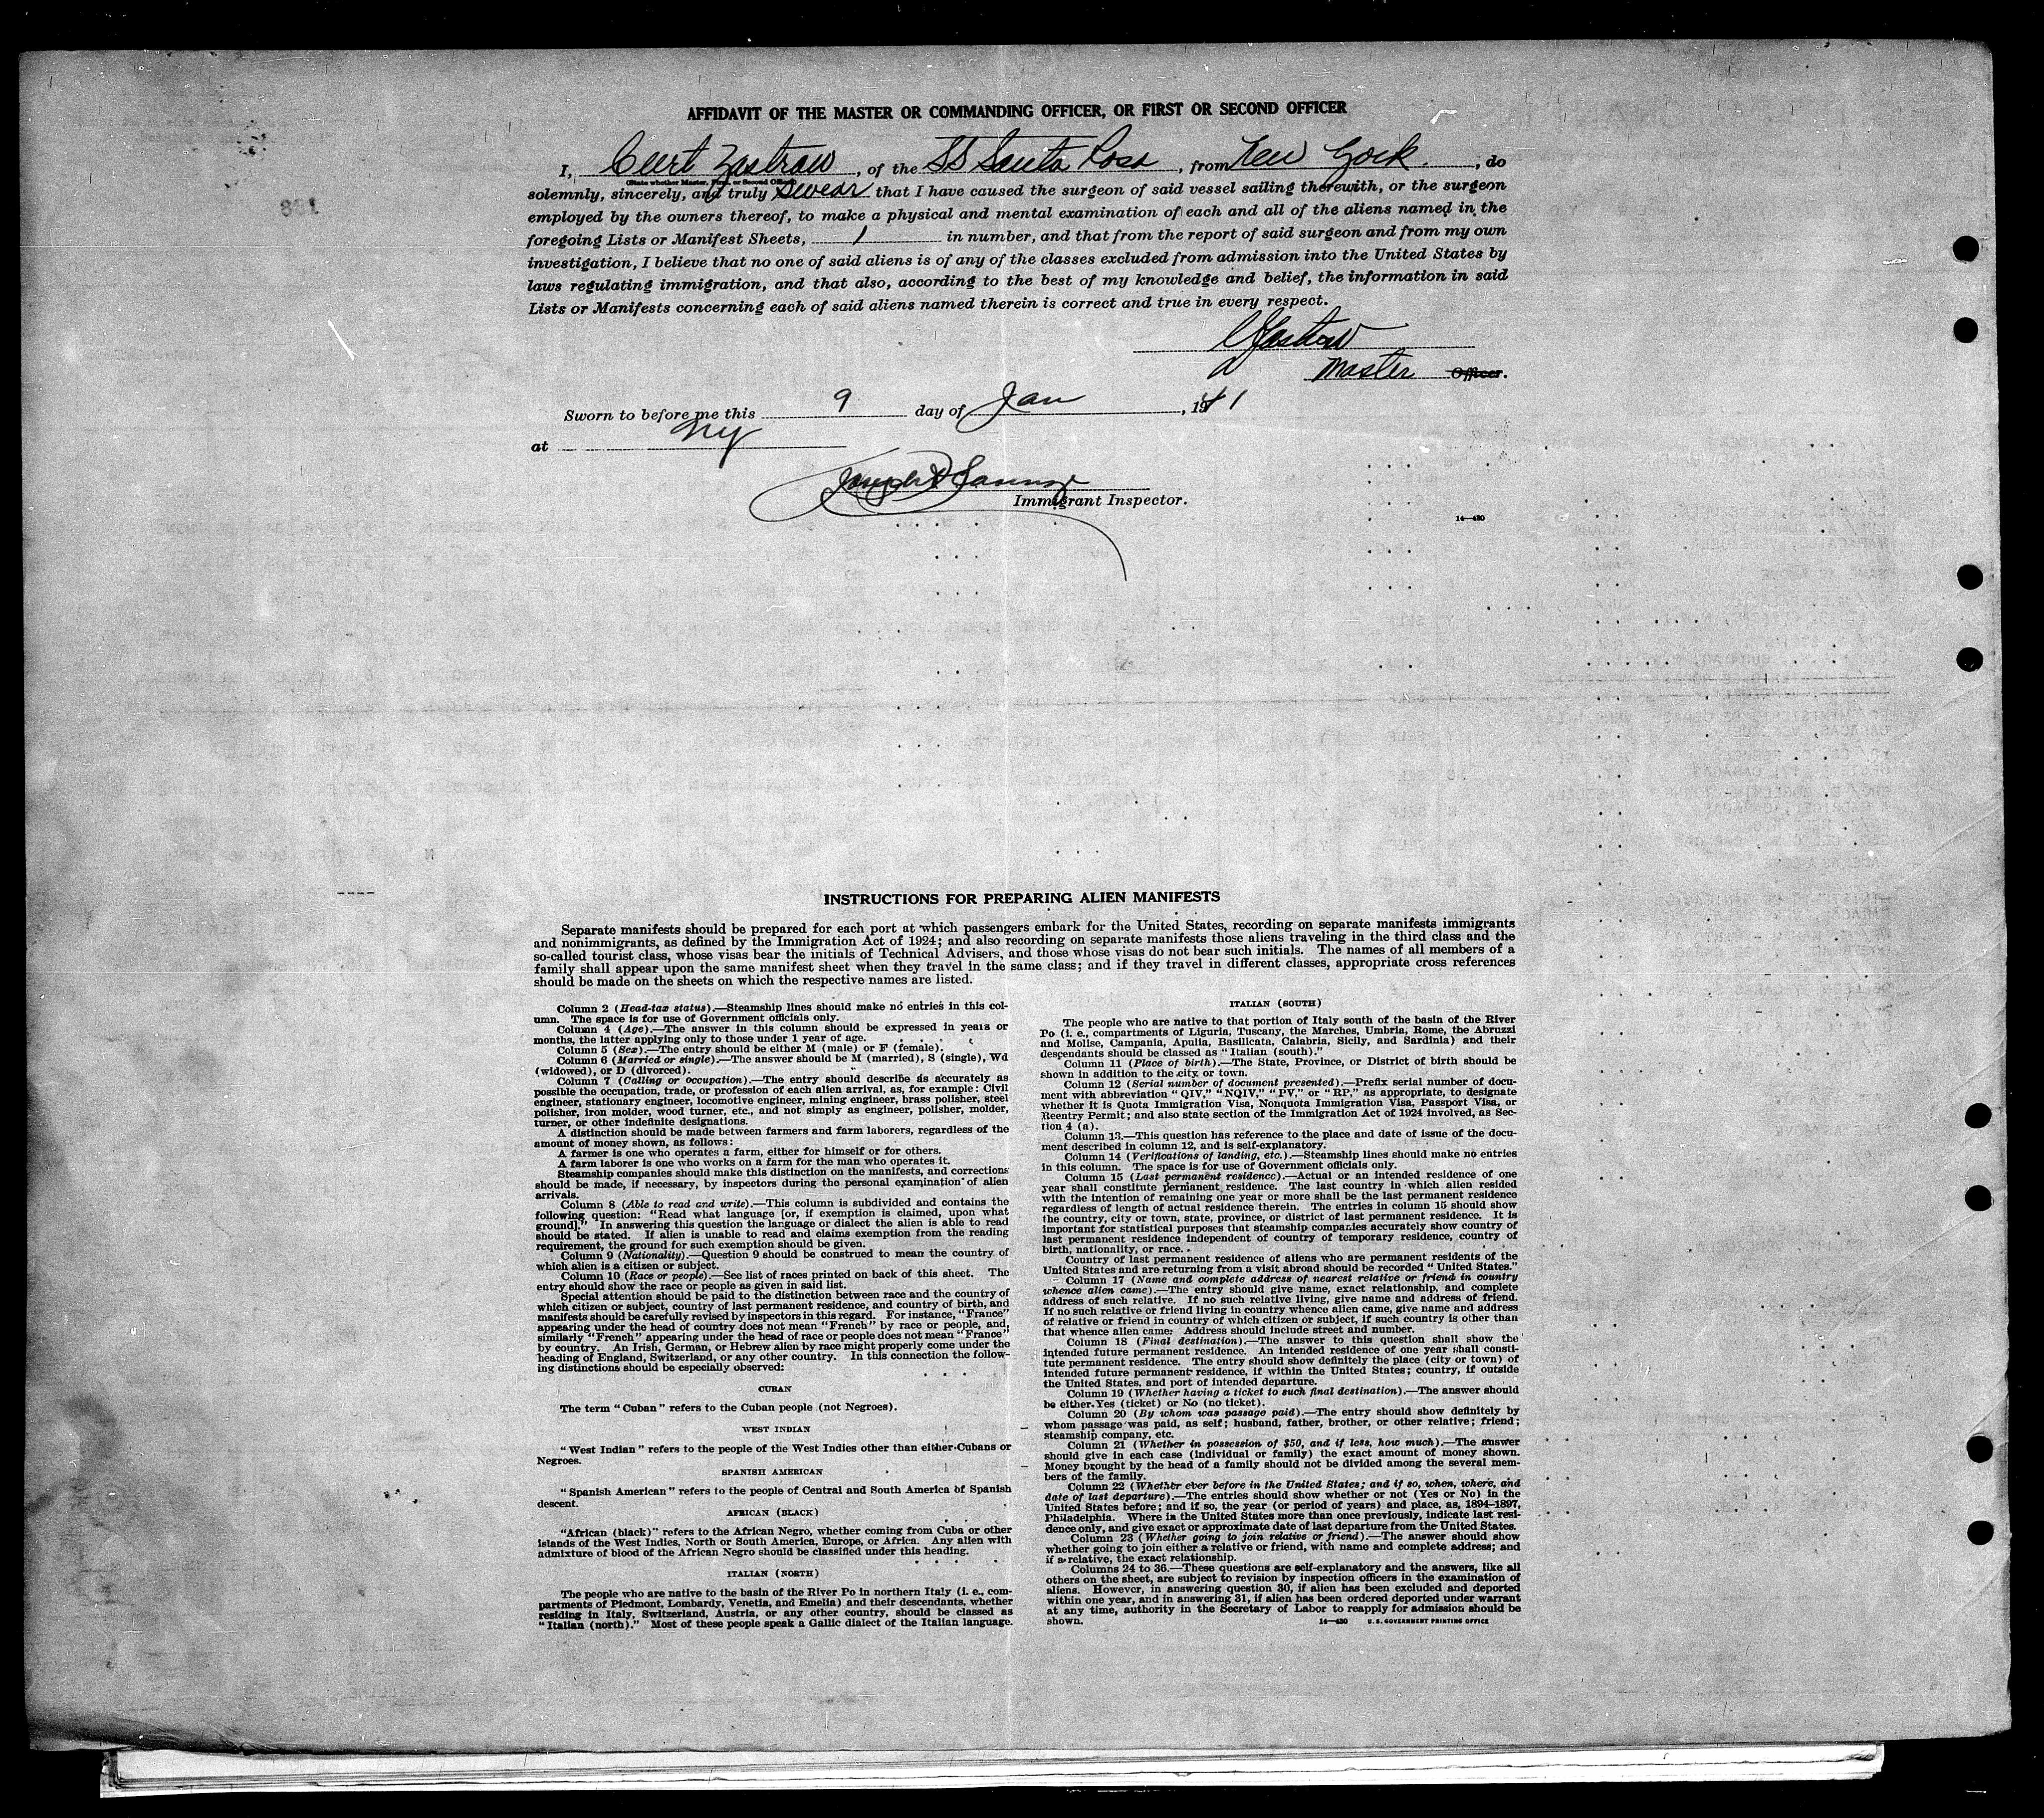 AFFIDAVIT OF THE MASTER OR COMMANDING OFFICER, OR FIRST OR SECOND OFFICER
I, Curt Zastrow, of the SS Santa Rosa, from New York, do
(State whether Master, First, or Second Officer)
solemnly, sincerely, and truly swear that I have caused the surgeon of said vessel sailing therewith, or the surgeon
employed by the owners thereof, to make a physical and mental examination of each and all of the aliens named in the
foregoing Lists or Manifest Sheets, 1 in number, and that from the report of said surgeon and from my own
investigation, I believe that no one of said aliens is of any of the classes excluded from admission into the United States by
laws regulating immigration, and that also, according to the best of my knowledge and belief, the information in said
Lists or Manifests concerning each of said aliens named therein is correct and true in every respect.
C Zastrow
Master Officer.
Sworn to before me this 9 day of Jan, 1941
at NY
Joseph
Immigrant Inspector.
14—430
INSTRUCTIONS FOR PREPARING ALIEN MANIFESTS
Separate manifests should be prepared for each port at which passengers embark for the United States, recording on separate manifests immigrants
and nonimmigrants, as defined by the Immigration Act of 1924; and also recording on separate manifests those aliens traveling in the third class and the
so-called tourist class, whose visas bear the initials of Technical Advisers, and those whose visas do not bear such initials. The names of all members of a
family shall appear upon the same manifest sheet when they travel in the same class; and if they travel in different classes, appropriate cross references
should be made on the sheets on which the respective names are listed.
Column 2 (Head-tax status).—Steamship lines should make no entries in this col-
umn. The space is for use of Government officials only.
Column 4 (Age).—The answer in this column should be expressed in years or
months, the latter applying only to those under 1 year of age.
Column 5 (Sex).—The entry should be either M (male) or F (female).
Column 6 (Married or single).—The answer should be M (married), S (single), Wd
(widowed), or D (divorced).
Column 7 (Calling or occupation).—The entry should describe as accurately as
possible the occupation, trade, or profession of each alien arrival, as, for example: Civil
engineer, stationary engineer, locomotive engineer, mining engineer, brass polisher, steel
polisher, iron molder, wood turner, etc., and not simply as engineer, polisher, molder,
turner, or other indefinite designations.
A distinction should be made between farmers and farm laborers, regardless of the
amount of money shown, as follows:
A farmer is one who operates a farm, either for himself or for others.
A farm laborer is one who works on a farm for the man who operates it.
Steamship companies should make this distinction on the manifests, and corrections
should be made, if necessary, by inspectors during the personal examination of alien
arrivals.
Column 8 (Able to read and write).—This column is subdivided and contains the
following question: "Read what language [or, if exemption is claimed, upon what
ground]." In answering this question the language or dialect the alien is able to read
should be stated. If alien is unable to read and claims exemption from the reading
requirement, the ground for such exemption should be given.
Column 9 (Nationality).—Question 9 should be construed to mean the country of
which alien is a citizen or subject.
Column 10 (Race or people).—See list of races printed on back of this sheet. The
entry should show the race or people as given in said list.
Special attention should be paid to the distinction between race and the country of
which citizen or subject, country of last permanent residence, and country of birth, and
manifests should be carefully revised by inspectors in this regard. For instance, "France"
appearing under the head of country does not mean "French" by race or people, and,
similarly "French" appearing under the head of race or people does not mean "France"
by country. An Irish, German, or Hebrew alien by race might properly come under the
heading of England, Switzerland, or any other country. In this connection the follow-
ing distinctions should be especially observed:
CUBAN
The term "Cuban" refers to the Cuban people (not Negroes).
WEST INDIAN
"West Indian" refers to the people of the West Indies other than either Cubans or
Negroes.
SPANISH AMERICAN
"Spanish American" refers to the people of Central and South America of Spanish
descent.
AFRICAN (BLACK)
"African (black)" refers to the African Negro, whether coming from Cuba or other
islands of the West Indies, North or South America, Europe, or Africa. Any alien with
admixture of blood of the African Negro should be classified under this heading.
ITALIAN (NORTH)
The people who are native to the basin of the River Po in northern Italy (i. e., com-
partments of Piedmont, Lombardy, Venetia, and Emelia) and their descendants, whether
residing in Italy, Switzerland, Austria, or any other country, should be classed as
"Italian (north)." Most of these people speak a Gallic dialect of the Italian language.
ITALIAN (SOUTH)
The people who are native to that portion of Italy south of the basin of the River
Po (i. e., compartments of Liguria, Tuscany, the Marches, Umbria, Rome, the Abruzzi
and Molise, Campania, Apulia, Basilicata, Calabria, Sicily, and Sardinia) and their
descendants should be classed as "Italian (south)."
Column 11 (Place of birth).—The State, Province, or District of birth should be
shown in addition to the city or town.
Column 12 (Serial number of document presented).—Prefix serial number of docu-
ment with abbreviation "QIV," "NQIV," "PV," or "RP," as appropriate, to designate
whether it is Quota Immigration Visa, Nonquota Immigration Visa, Passport Visa, or
Reentry Permit; and also state section of the Immigration Act of 1924 involved, as Sec-
tion 4 (a).
Column 13.—This question has reference to the place and date of issue of the docu-
ment described in column 12, and is self-explanatory.
Column 14 (Verifications of landing, etc.).—Steamship lines should make no entries
in this column. The space is for use of Government officials only.
Column 15 (Last permanent residence).—Actual or an intended residence of one
year shall constitute permanent residence. The last country in which alien resided
with the intention of remaining one year or more shall be the last permanent residence
regardless of length of actual residence therein. The entries in column 15 should show
the country, city or town, state, province, or district of last permanent residence. It is
important for statistical purposes that steamship companies accurately show country of
last permanent residence independent of country of temporary residence, country of
birth, nationality, or race.
Country of last permanent residence of aliens who are permanent residents of the
United States and are returning from a visit abroad should be recorded "United States."
Column 17 (Name and complete address of nearest relative or friend in country
whence alien came).—The entry should give name, exact relationship, and complete
address of such relative. If no such relative living, give name and address of friend.
If no such relative or friend living in country whence alien came, give name and address
of relative or friend in country of which citizen or subject, if such country is other than
that whence alien came. Address should include street and number.
Column 18 (Final destination).—The answer to this question shall show the
intended future permanent residence. An intended residence of one year shall consti-
tute permanent residence. The entry should show definitely the place (city or town) of
intended future permanent residence, if within the United States; country, if outside
the United States, and port of intended departure.
Column 19 (Whether having a ticket to such final destination).—The answer should
be either Yes (ticket) or No (no ticket).
Column 20 (By whom was passage paid).—The entry should show definitely by
whom passage was paid, as self; husband, father, brother, or other relative; friend;
steamship company, etc.
Column 21 (Whether in possession of $50, and if less, how much).—The answer
should give in each case (individual or family) the exact amount of money shown.
Money brought by the head of a family should not be divided among the several mem-
bers of the family.
Column 22 (Whether ever before in the United States; and if so, when, where, and
date of last departure).—The entries should show whether or not (Yes or No) in the
United States before; and if so, the year (or period of years) and place, as, 1894–1897,
Philadelphia. Where in the United States more than once previously, indicate last resi-
dence only, and give exact or approximate date of last departure from the United States.
Column 23 (Whether going to join relative or friend).—The answer should show
whether going to join either a relative or friend, with name and complete address; and
if a relative, the exact relationship.
Columns 24 to 36.—These questions are self-explanatory and the answers, like all
others on the sheet, are subject to revision by inspection officers in the examination of
aliens. However, in answering question 30, if alien has been excluded and deported
within one year, and in answering 31, if alien has been ordered deported under warrant
at any time, authority in the Secretary of Labor to reapply for admission should be
shown.
14—430 U. S. GOVERNMENT PRINTING OFFICE